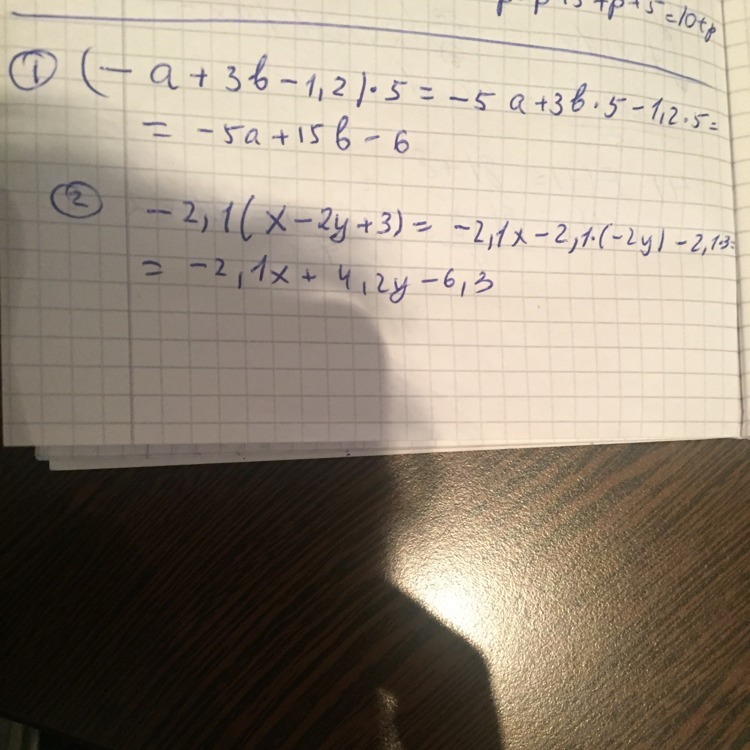 =10+p
① (- a + 3b - 1,2)·5 = -5 a + 3b·5 - 1,2·5 =
= -5a + 15b - 6
② -2,1(x - 2y + 3) = -2,1x - 2,1·(-2y) - 2,1·3=
= -2,1x + 4,2y - 6,3